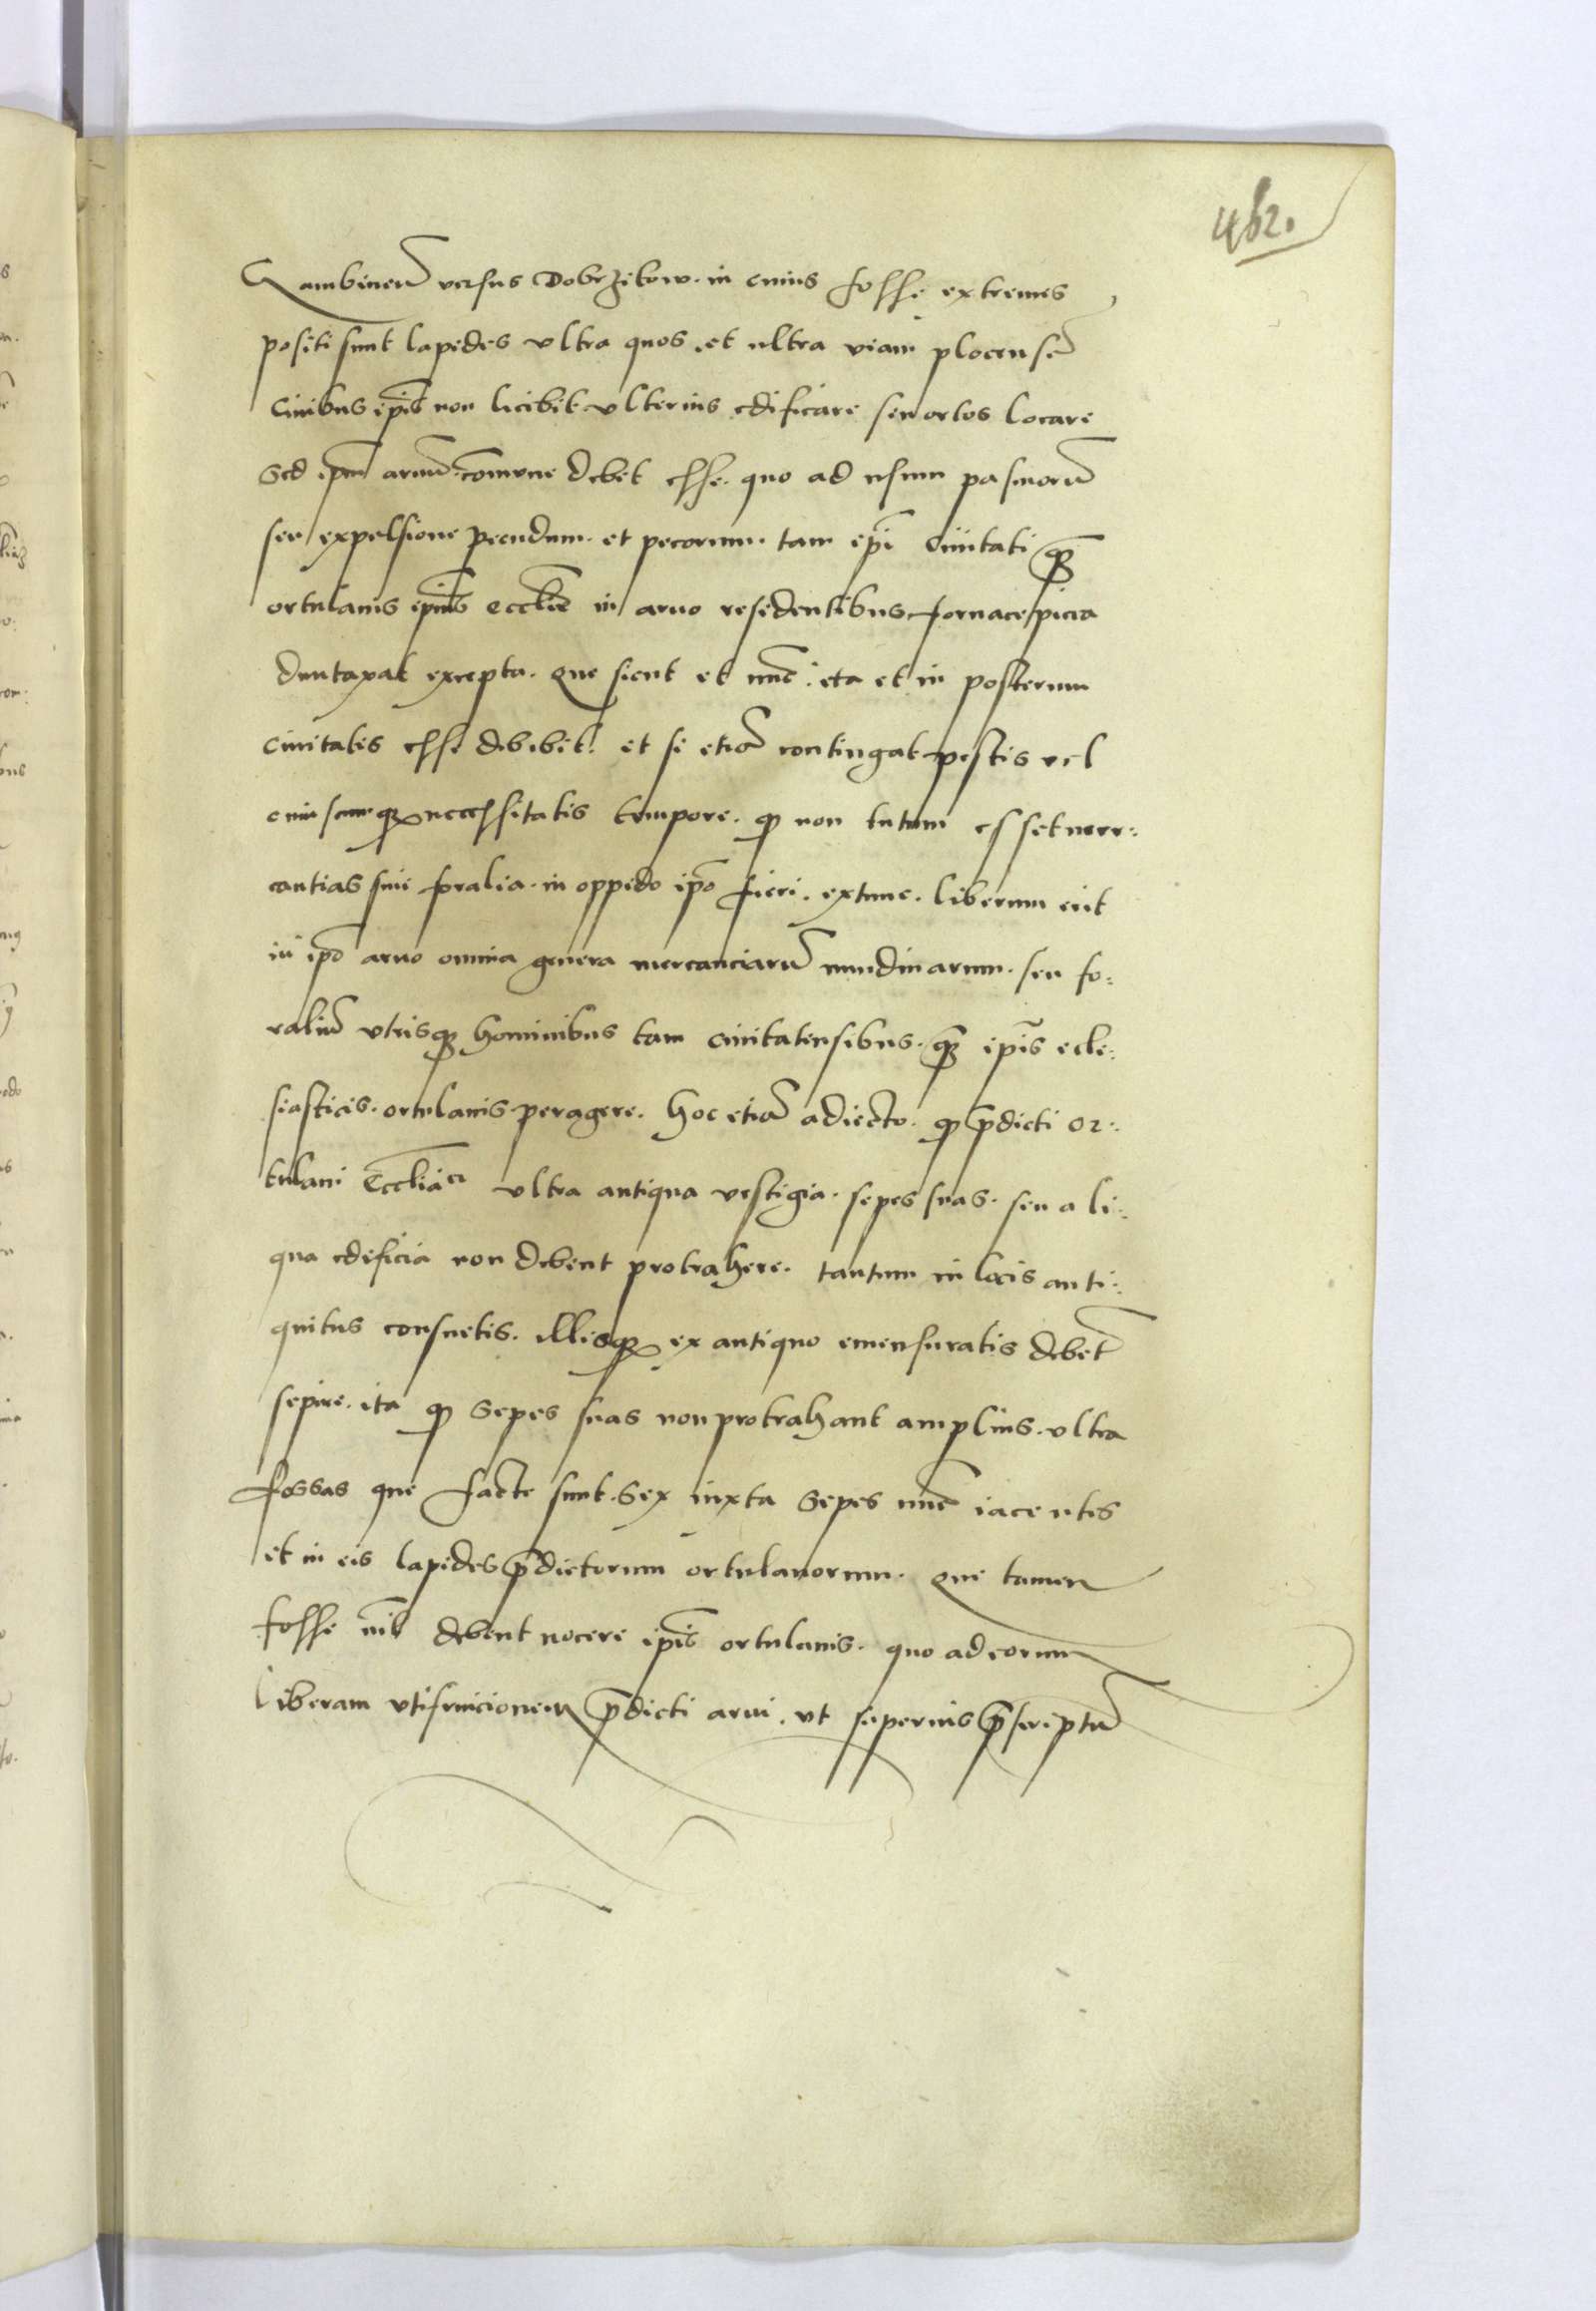 462.
Gambinen̄ versus Dobrzikow. in cuius fosse extremes
positi sunt lapides vltra quos. et ultra viam plocensē
Ciuibus ip̄is non licibit vlterius edificare seu ortos locare
Sed ipm̄ aruū comune debet esse. quo ad usum pascuorū
seu expulsione pecudum. et pecorum. tam ip̄i Ciuitati qꝫ̄
ortulanis ip̄ius eccl̄ie in aruo residentibus fornace picia
duntaxat excepta. que sicut et nūc. ita et in posterum
ciuitatis esse debebit. et si etiā contingat pestis vel
cuiuscunqꝫ necessitatis tempore. qꝫ non tutum esset mer:
cantias siue foralia. in oppido ip̄o fieri. extunc. liberum erit
in ip̄o aruo omnia genera mercanciarū nundinarum. seu fo:
raliū vtrisqꝫ hominibus tam ciuitatensibus. qꝫ̄ ip̄is ecle:
siasticis. ortulanis peragere. Hoc etiā adiecto. qꝫ p̄dicti or:
tulani Eccl̄iaꝝ vltra antiqua vestigia. sepes suas. seu ali:
qua edificia non debent protrahere. tantum in locis anti:
quitus consuetis. illisqꝫ ex antiquo emensuratis debet̄
sepire. ita qꝫ Sepes suas non protrahant amplius. vltra
fossas que facte sunt. Sex iuxta Sepes nūc iacentes
et in eis lapides p̄dictorum ortulanorum. que tamen
fosse nil̄ debent nocere ip̄is ortulanis. quo ad eorum
liberam vtifruicionem p̄dicti arui. vt superius p̄scriptū